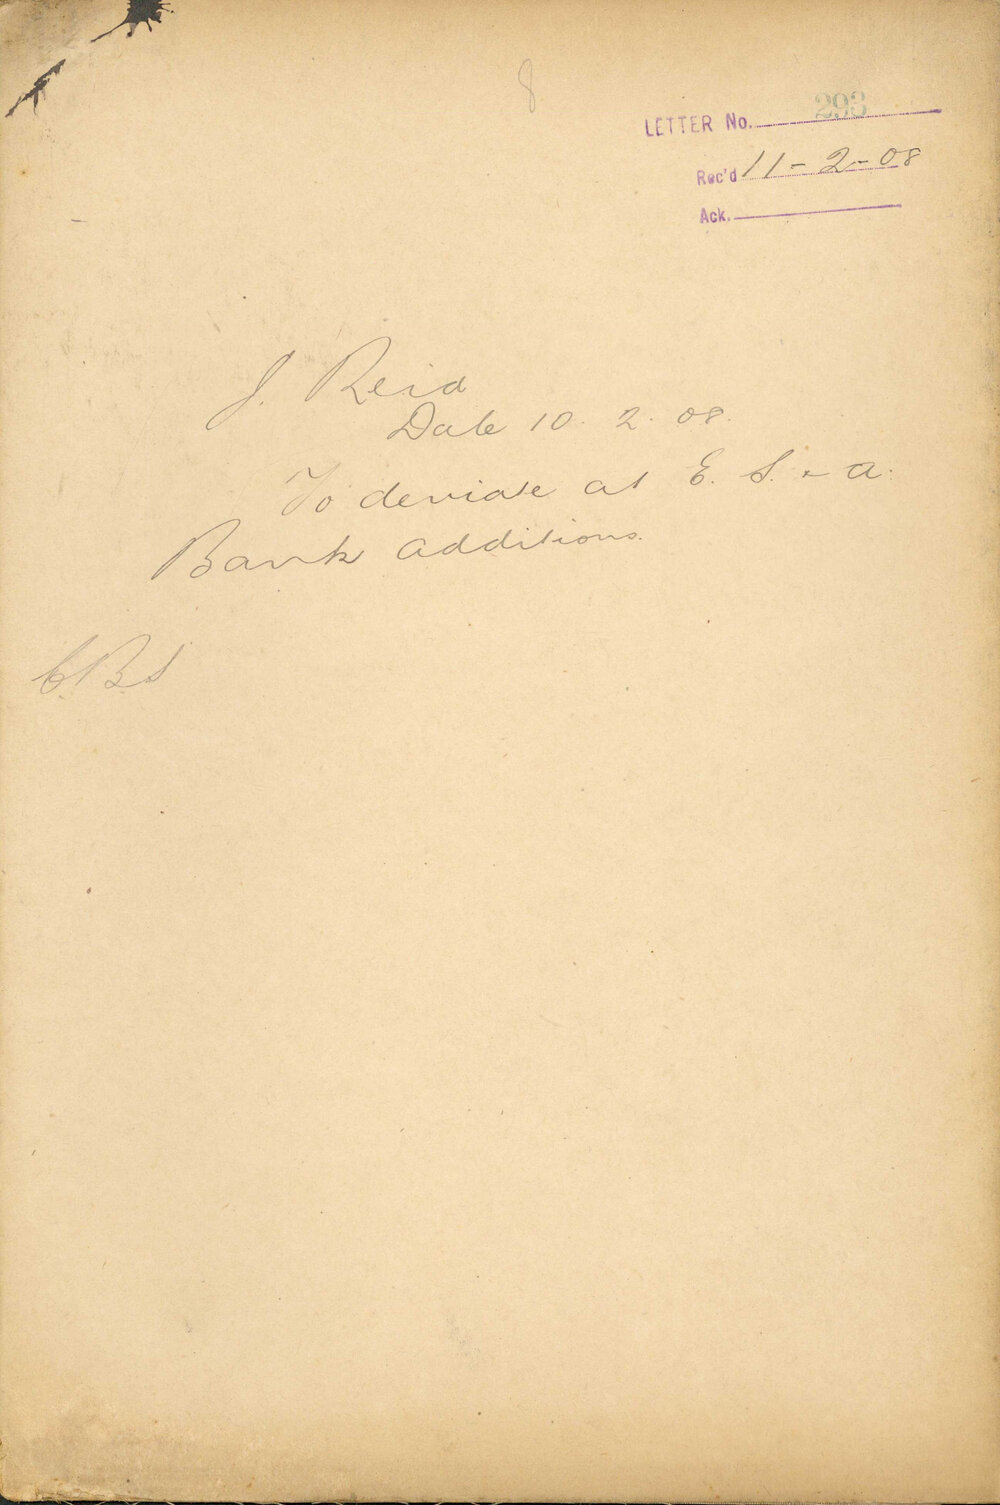 8
LETTER No. 293
Rec'd 11-2-08
Ack.
J. Reid
Date 10. 2. 08.
To deviate at E. S. & A.
Bank additions.
C.B.S